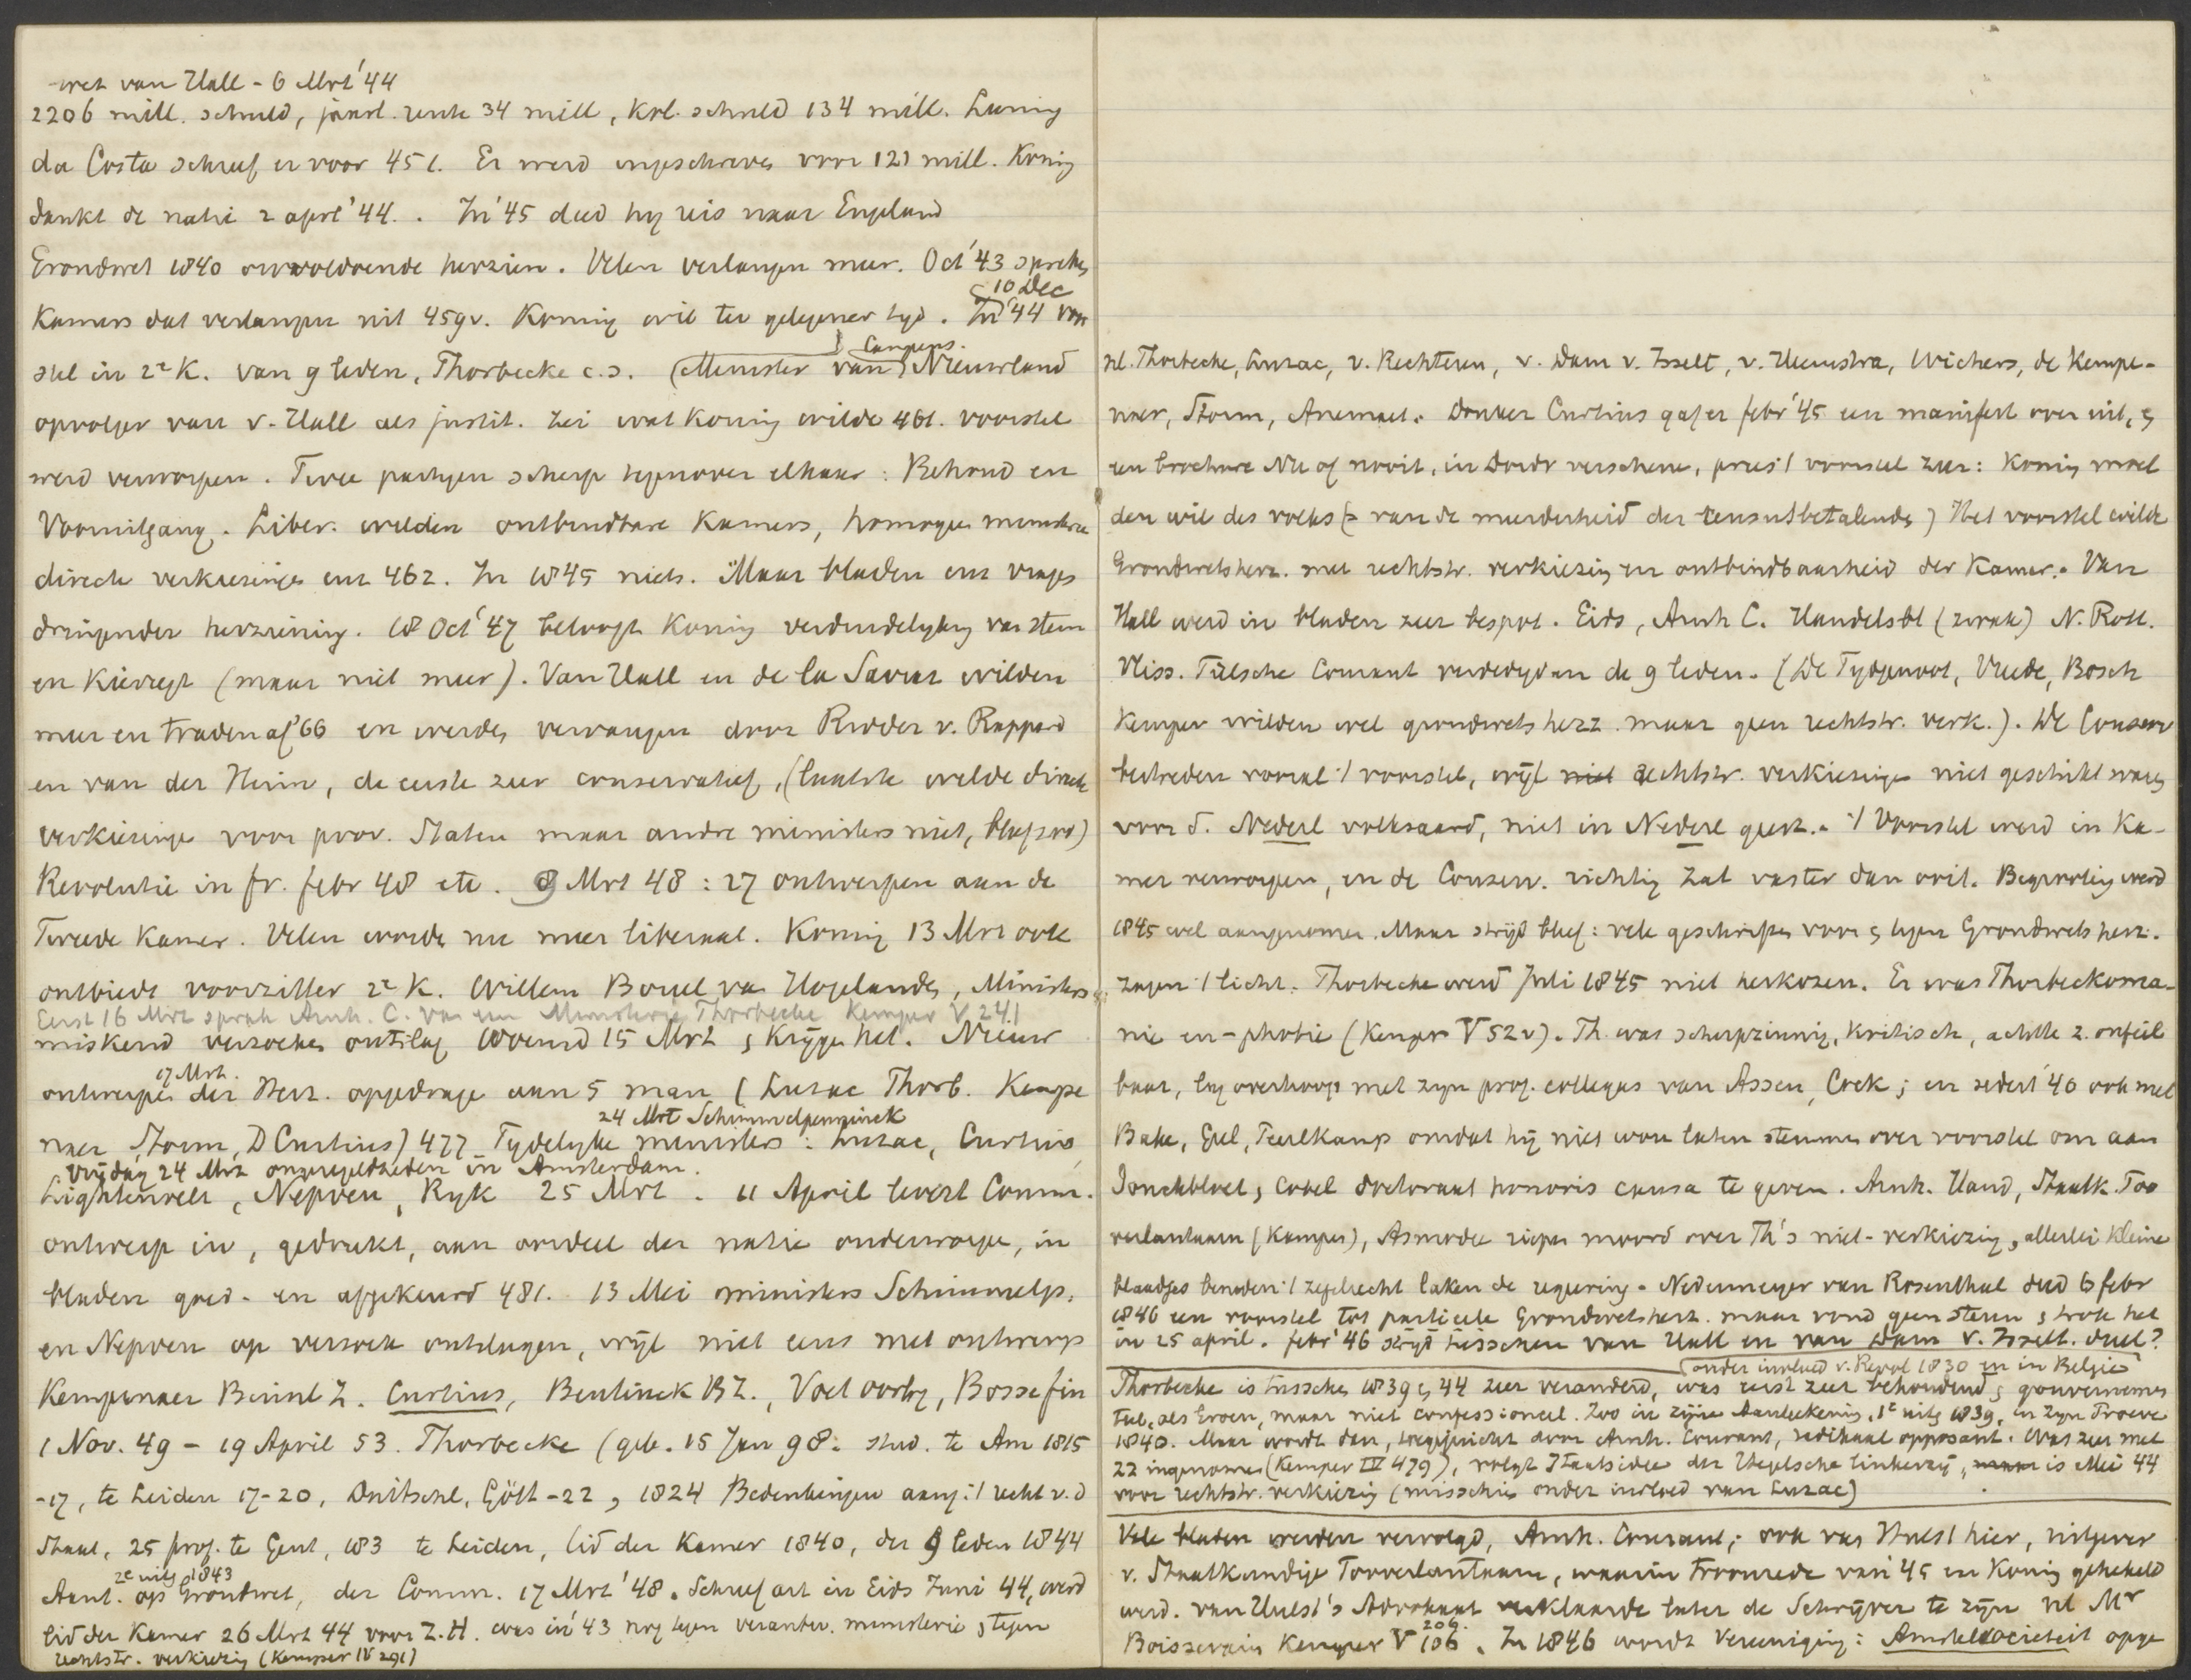 wet van Hall - 6 Mrt '44
2206 mill. schuld, jaarl. rente 34 mill, Kol. schuld 134 mill. Lening
da Costa schreef er voor 451. Er werd ingeschreven voor 121 mill. Koning
dankt de natie 2 april '44. In '45 deed hy reis naar Engeland
Grondwet 1840 onvoldoende herzien. Velen verlangen meer. Oct '43 spreken
10 Dec
Kamers dat verlangen uit 459v. Koning wil ter gelegener tyd. In '44 voor
stel in 2e K. van 9 leden, Thorbecke c.s. (Minister van Nieuwland
opvolger van v. Hall als justit. zei wat Koning wilde 461. voorstel
werd verworpen. Twee partyen scherp tegenover elkaar: Behoud en
Vooruitgang. Liber. wilden ontbindbare Kamers, homogeen ministerie
directe verkiezingen enz 462. In 1845 niets. Maar bladen enz vragen
dringender herziening. 18 Oct '47 belooft Koning verduidelyking van stem
en Kiesregt (maar niet meer). Van Hall en de la Sarraz wilden
meer en traden af '66 en werden vervangen door Ridder v. Rappard
en van der Heim, de eerste zeer conservatief, (laatste wilde directe
verkiezinge voor prov. Staten maar andre ministers niet,
Revolutie in fr. febr 48 etc. 9 Mrt 48: 27 ontwerpen aan de
Tweede Kamer. Velen worden nu meer liberaal. Koning 13 Mrt ook
ontbiedt voorzitter 2e K. Willem Boreel van Hogelanden, Ministers
Eerst 16 Mrt sprak Arnh. C. van een Ministerie Thorbecke Kemper V 241
miskend verzoeken ontslag Woensd 15 Mrt & krijgen het. Nieuw
17 Mrt.
ontwerpen der Herz. opgedrage aan 5 man (Luzac Thorb. Kempe
24 Mrt Schimmelpenninck
naer, Storm, D Curtius) 477 Tydelyke ministers: Luzac, Curtius,
Vrijdag 24 Mrt ongeregeldheden in Amsterdam.
Lightenvelt, Nepveu, Ryk 25 Mrt. 11 April levert Comm.
ontwerp in, gedrukt, aan oordeel der natie onderworpe, in
bladen goed- en afgekeurd 481. 13 Mei ministers Schimmelp.
en Nepveu op verzoek ontslagen, wijl niet eens met ontwerp
Kempenaer Binnl Z. Curtius, Bentinck BZ., Voet oorlog, Bosse fin
1 Nov. 49 - 19 April 53. Thorbecke (geb. 15 Jan 98: stud. te Am 1815
-17, te Leiden 17-20, Duitschl, Gött -22, 1824 Bedenkingen aang: 't recht v. d
Staat, 25 prof. te Gent, 183 te Leiden, lid der Kamer 1840, der 9 leden 1844
2e uitg 1843
Aant. op Grondwet, der Comm. 17 Mrt '48. Schreef art in Gids Juni 44, werd
lid der Kamer 26 Mrt 44 voor Z.H. was in '43 nog tegen verantw. ministerie, & tegen
rechtstr. verkiezing (Kemper IV 291)
nl. Thorbecke, Luzac, v. Rechteren, v. Dam v. Isselt, v. Heemstra, Wichers, de Kempe-
naer, Storm, Anemaet. Donker Curtius gaf er febr '45 een manifest over uit, &
een brochure Nu of nooit, in Dordr verschenen, prees 't voorstel zeer: Koning moet
den wil des volks (= van de meerderheid der censusbetalenden) Het voorstel wilde
Grondwetsherz. met rechtstr. verkiezing en ontbindbaarheid der Kamer. Van
Hall werd in bladen zeer bespot. Gids, Arnh C. Handelsbl (zwak) N. Rott.
Vliss. Tielsche Courant verdedigden de 9 leden. (De Tydgenoot, Vreede, Bosch
Kemper wilden wel grondwetsherz. maar geen rechtstr. verk.). De Conserv
bestreden vooral 't voorstel, wijl rechtstr. verkiezinge niet geschikt waren
voor d. Nederl volksaard, niet in Nederl gesch. 't Voorstel werd in Ka-
mer verworpen, en de Conserv. richting zat vaster dan ooit. Begrooting werd
1845 wel aangenomen. Maar strijd bleef: vele geschriften voor & tegen Grondwetsherz.
zagen 't licht. Thorbecke werd Juli 1845 niet herkozen. Er was Thorbeckoma-
nie en -phobie (Kemper V 52v). Th. was scherpzinnig, kritisch, achtte z. onfeil
baar, lag overhoop met zyn prof. collegas van Assen, Cock; en sedert '40 ook met
Bake, Geel, Peerlkamp omdat hij niet wou laten stemmen over voorstel om aan
Jonckbloet & Cobet doctoraat honoris causa te geven. Arnh. Hand, Staatk. Too
verlantaarn (Kampen), Asmodee riepen moord over Th's niet-verkiezing, allerlei kleine
blaadjes beneden 't zegelrecht laken de regeering. Nedermeyer van Rosenthal deed 6 febr
1846 een voorstel tot particele Grondwetsherz. maar vond geen steun & trok het
in 25 april. febr '46 strijd tusschen van Hall en van Dam v. Isselt. duel?
onder invloed v. Revol 1830 en in Belgie
Thorbecke is tusschen 1839 & 44 zeer veranderd, was eerst zeer behoudend & gouvernemen
teel, als Groen, maar niet confessioneel. Zoo in zijne Aanteekening, 1e uitg 1839, en zyn Proeve
1840. Maar wordt dan, toegejuicht door Arnh. Courant, radikaal opposant. Was zeer met
22 ingenomen (Kemper IV 479), volgt Staatsidee der Hegelsche linkerzij, is Mei 44
voor rechtstr. verkiezing (misschien onder invloed van Luzac)
Vele bladen werden vervolgd, Arnh. Courant; ook van Hulst hier, uitgever
v. Staatkundige Tooverlantaarn, waarin Troonrede van '45 en Koning gehekeld
werd. van Hulst's Advokaat verklaarde later de Schrijver te zijn nl Mr
206.
Boissevain Kemper V 106. In 1846 wordt Vereeniging: Amstelsocieteit opge